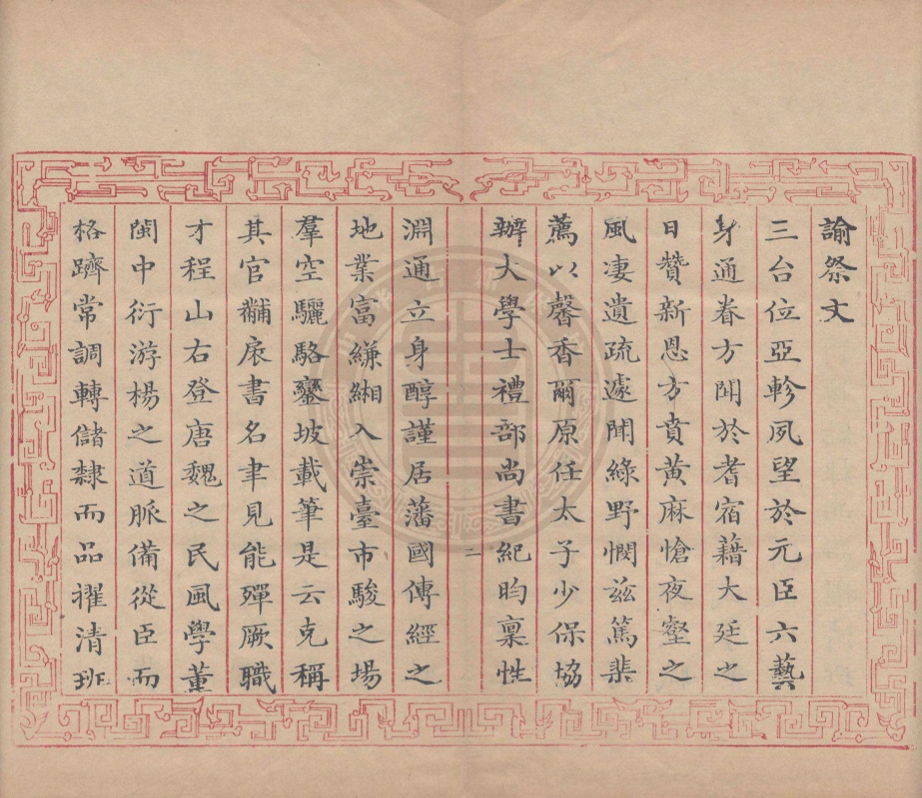 諭祭文
三台位亞軫夙望於元臣六藝
身通眷方聞於耆宿藉大廷之
日贊新恩方賁黃麻愴夜壑之
風淒遺疏遽聞綠野憫茲篤棐
薦以馨香爾原任太子少保協
辦大學士禮部尚書紀昀稟性
二
淵通立身醇謹居藩國傳經之
地業富縑緗入崇臺市駿之場
羣空驪駱鑾坡載筆是云克稱
其官黼扆書名聿見能殫厥職
才程山右登唐魏之民風學董
閩中衍游楊之道脈備從臣而
格躋常調轉儲隸而品擢清班